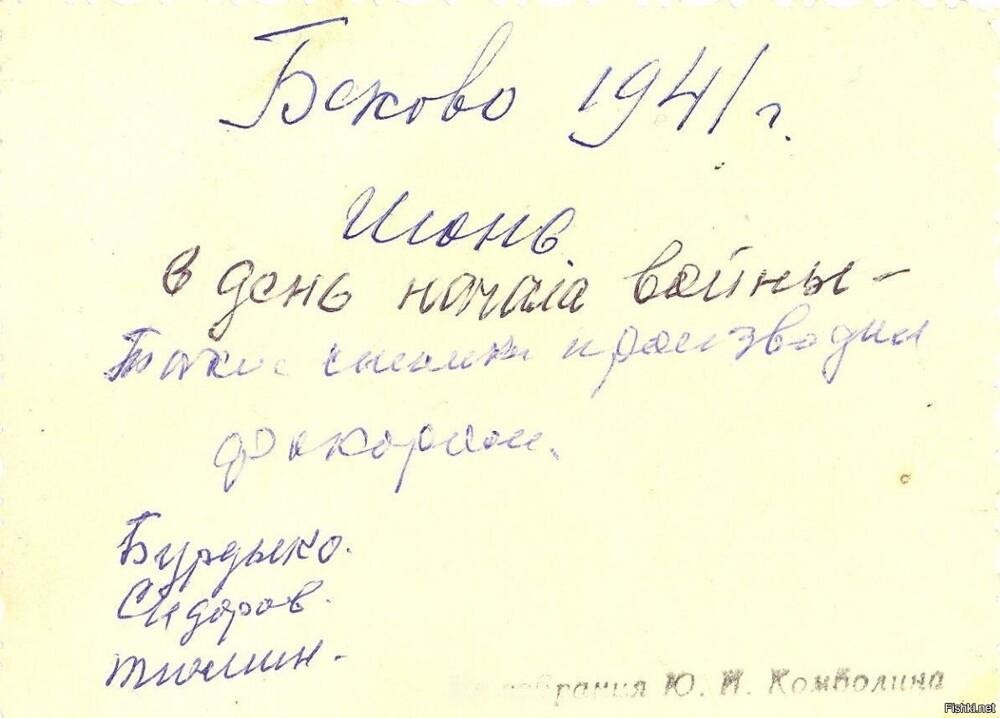 Беково 1941 г.
Июнь
в день начала войны –
Такие снимки производил
фокором.
Бурдыко.
Сидоров.
Тюлин.
собрания Ю. И. Комболина
Fishki.net